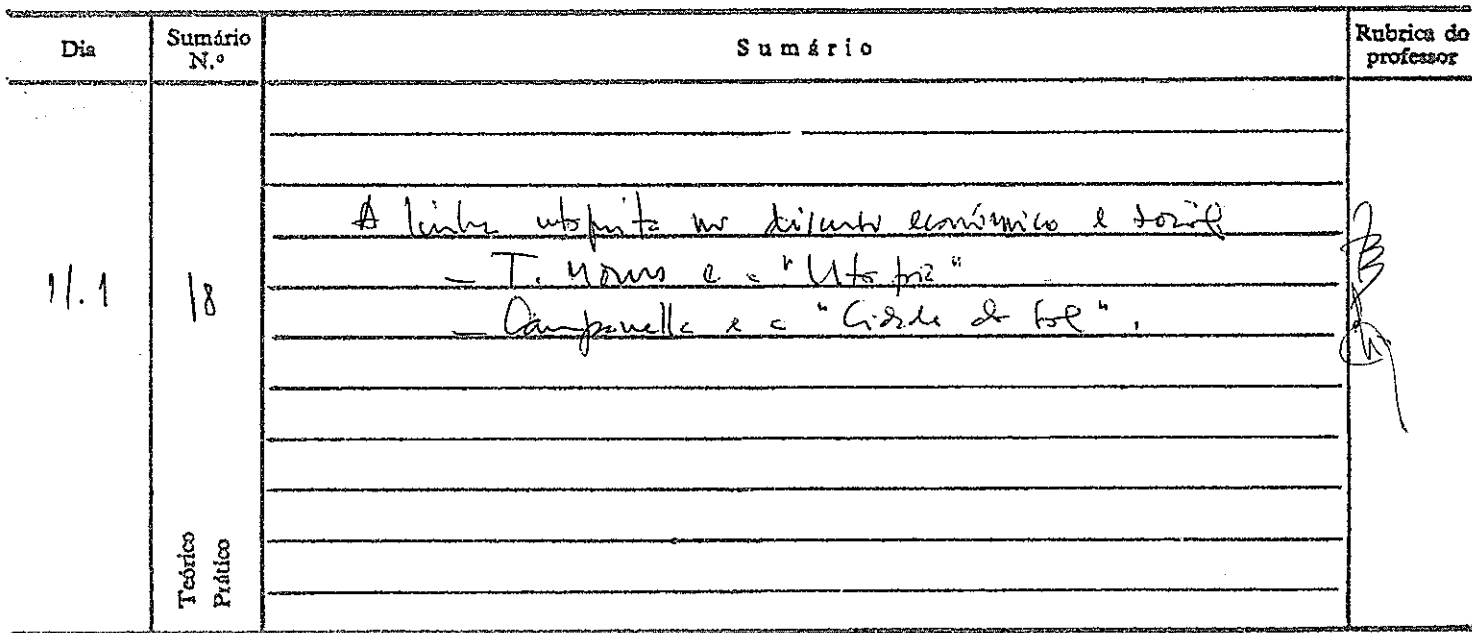 Dia
Sumário N.º
Sumário
Rubrica do professor
A linha utopista no discurso económico e social
11.1
18
– T. Morus e a "Utopia"
– Campanella e a "Cidade do Sol".
Teórico
Prático